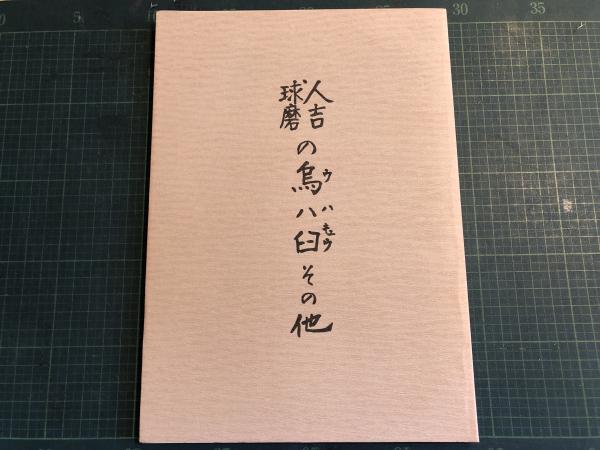 人吉
球磨
の烏八臼その他
ウハキュウ
10
5
30
35